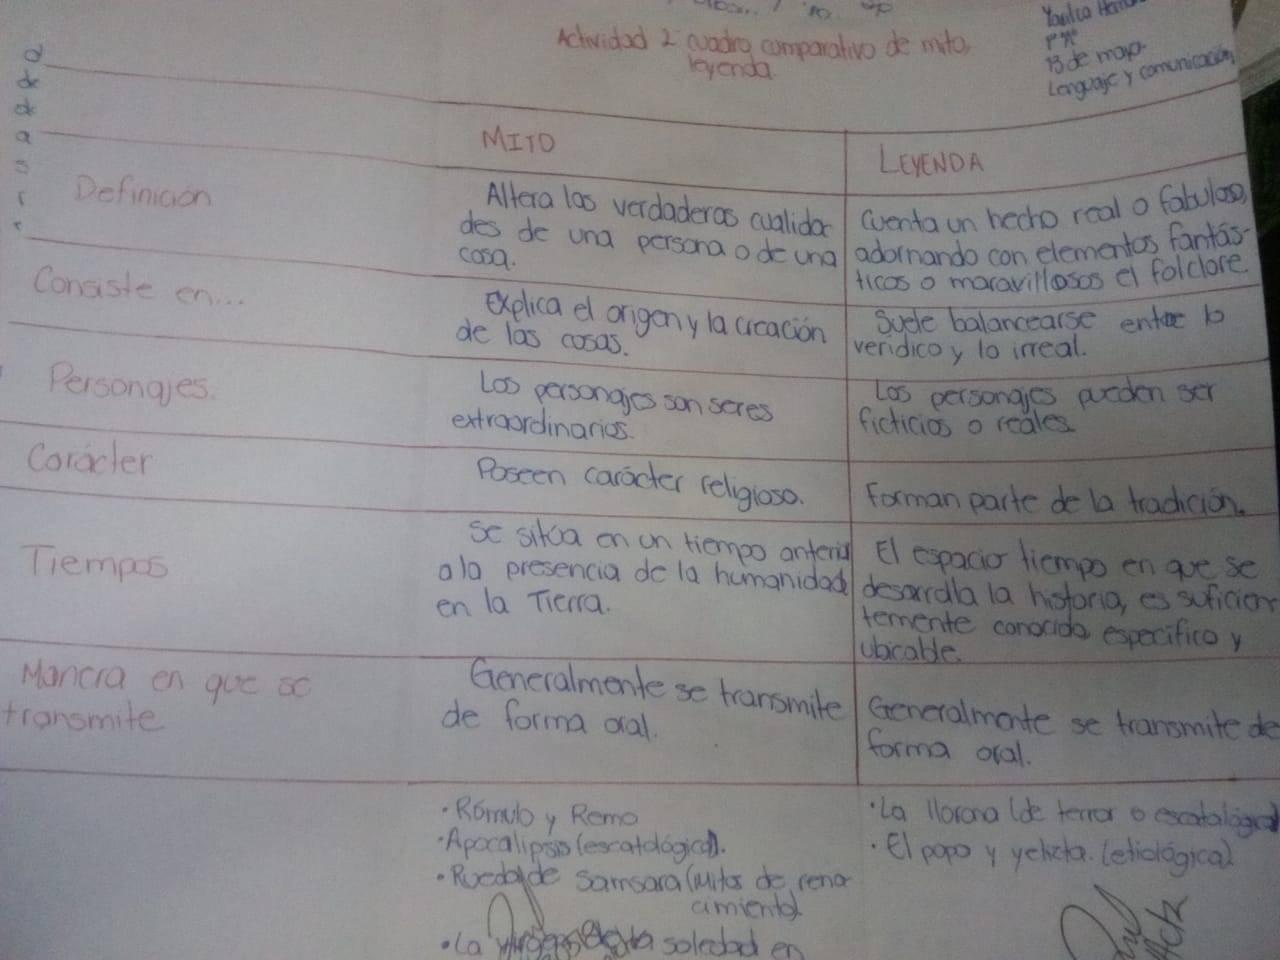 Actividad 2 cuadro comparativo de mito,
leyenda.
13 de mayo.
Lenguaje y comunicación
MITO
LEYENDA
Definición
Altera las verdaderas cualida
des de una persona o de una
cosa.
Cuenta un hecho real o fabuloso,
adornando con elementos fantás-
ticos o maravillosos el folclore.
Consiste en...
Explica el origen y la creación
de las cosas.
Suele balancearse entre lo
verídico y lo irreal.
Personajes.
Los personajes son seres
extraordinarios.
Los personajes pueden ser
ficticios o reales.
Carácter
Poseen carácter religioso.
Forman parte de la tradición.
Tiempos
Se sitúa en un tiempo anterior
a la presencia de la humanidad
en la Tierra.
El espacio tiempo en que se
desarrolla la historia, es suficien
temente conocido, específico y
ubicable.
Manera en que se
transmite
Generalmente se transmite
de forma oral.
Generalmente se transmite de
forma oral.
• Rómulo y Remo
• Apocalipsis (escatológica).
• Rueda de Samsara (Mitos de rena
cimiento)
• La soledad en
• La llorona (de terror o escatológica)
• El popo y (etiológica)